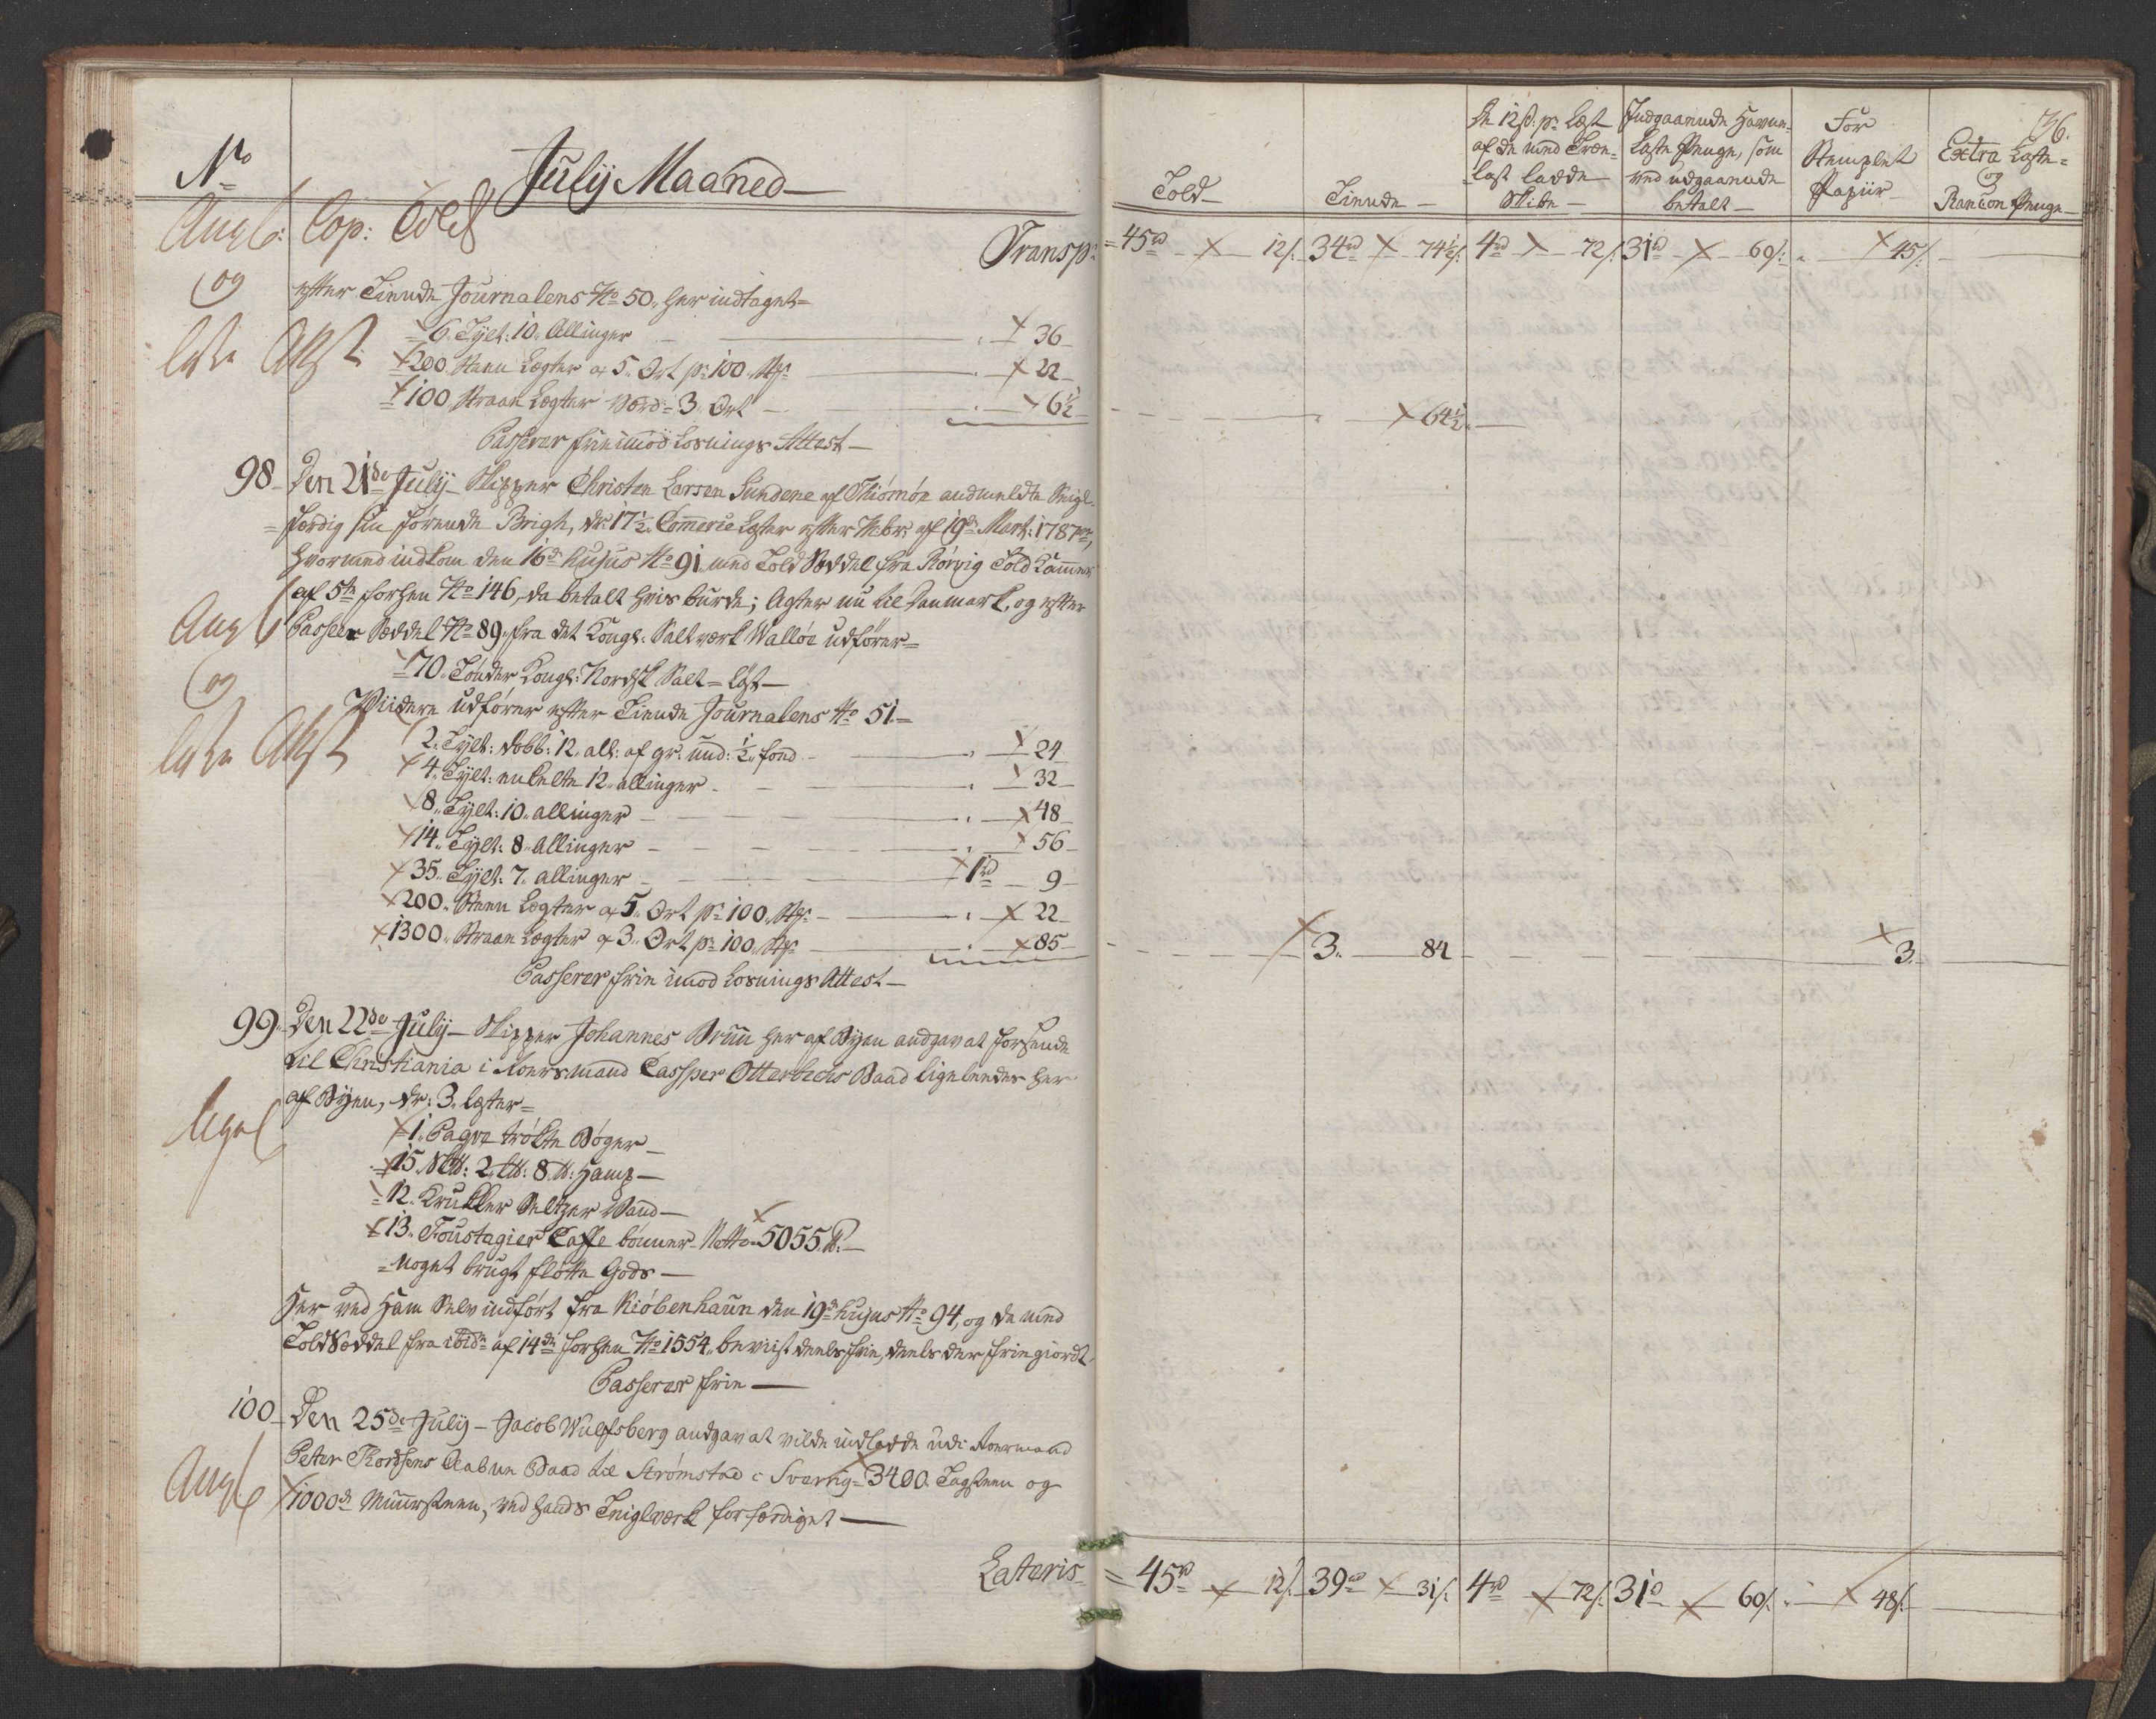 No
July Maaned
Told
Tiende
De 12 ß. pr Læst
af de med Træe-
last ladde
Skibe
Indgaaende Havne-
Laste Penge, som
ved udgaaende
betalt
For
Stemplet
Papiir
36.
Extra Laste-
og
Rancon Penge
Transp: = 45rd 12/: 34rd 74½/: 4rd 72/: 31rd 60/: 45/:
og
efter Tiende Journalens No 50 her indtaget=
6. Tylt: 10. Allinger 36
200 Steen Lægter a 5. Ort pr 100 Stk: 22
100 Straae Lægter værd= 3. Ort 6½ 64½
Passerer frie imod Losnings Attest
98 Den 21de July Skipper Christen Larsen Sundene af Thiömöe andmeldte Seigl-
færdig sin förende Brigh, dr: 17½ Comerce Læster efter Mbr: af 19de Marti 1787,
hvormed indkom den 16de hujus No 91 med Told Seddel fra Rörvig Told Kammer
af 5te forhen No 146, da betalt hvis burde; Agter nu til Danmark, og efter
Passeer Seddel No 89 fra det Kongl: Saltværk Walløe udförer=
70. Tönder Kongl: Nordsk Salt = Löst
og
Viidere udförer efter Tiende Journalens No 51.=
2. Tylt: dobb: 12. all: af gr: und: ½ food 24
4. Tylt: enkelte 12. allinger 32
8. Tylt: 10. allinger 48
14. Tylt: 8. Allinger 56
35. Tylt: 7. allinger 1rd 9
200. Steen Lægter a 5. Ort pr 100 Stk: 22
1300. Straae Lægter a 3. Ort pr 100 Stk: 85 3. 84 3.
Passerer frie imod Losnings Attest
99. Den 22de July Skipper Johannes Bruun her af Byen andgav at forsende
til Christiania i Roersmand Casper Otterbechs Baad ligeleedes her
af Byen, dr: 3. læster=
1. Paqve trökte Böger
15. Sk℔: 2. L℔: 8 ℔: Hamp
12. Krukker Seltzer Vand
13. Foustagier Caffe bönner Netto 5055 ℔:
noget brugt flötte Gods
Her ved Ham Selv indfört fra Kiöbenhaun den 19de hujus No 94, og de med
Told Seddel fra ibid: af 14de forhen No 1554. beviist deels frie, deels der friegiordt
Passerer frie
100 Den 25de July Jacob Wulfsberg andgav at vilde indladde udi Roermand
Peter Thorsens Aabne Baad til Strömstad i Sverrig= 3400. Tagsteen og
1000de Muursteen, ved hands Teiglværk forfærdiget
Lateris = 45rd 12/: 39rd 31/: 4rd 72/: 31rd 60/: 48/: